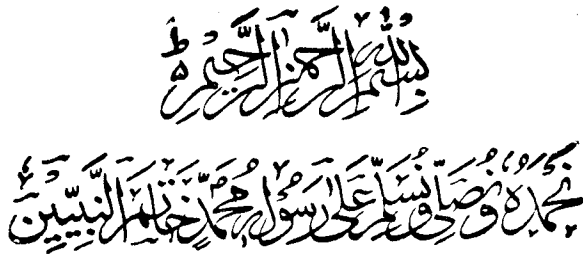 بِسْمِ اللّٰهِ الرَّحْمٰنِ الرَّحِيْمِ ؕ
نَحْمَدُهٗ وَنُصَلِّیْ وَنُسَلِّمُ عَلٰی رَسُوْلِهٖ مُحَمَّدٍ خَاتَمِ النَّبِيِّيْنَ